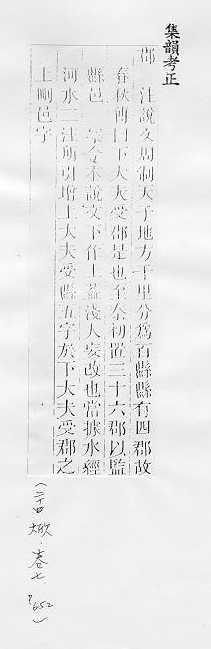 集韻考正
郡 注說文周制天子地方千里分爲百縣縣有四郡故
春秋傳曰下大夫受郡是也至秦初置三十六郡以監
縣邑 案今本說文下作上蓋淺人妄改也當據水經
河水二注所引增上大夫受縣五字於下大夫受郡之
上刪邑字
(二十四 焮．卷七 P652)